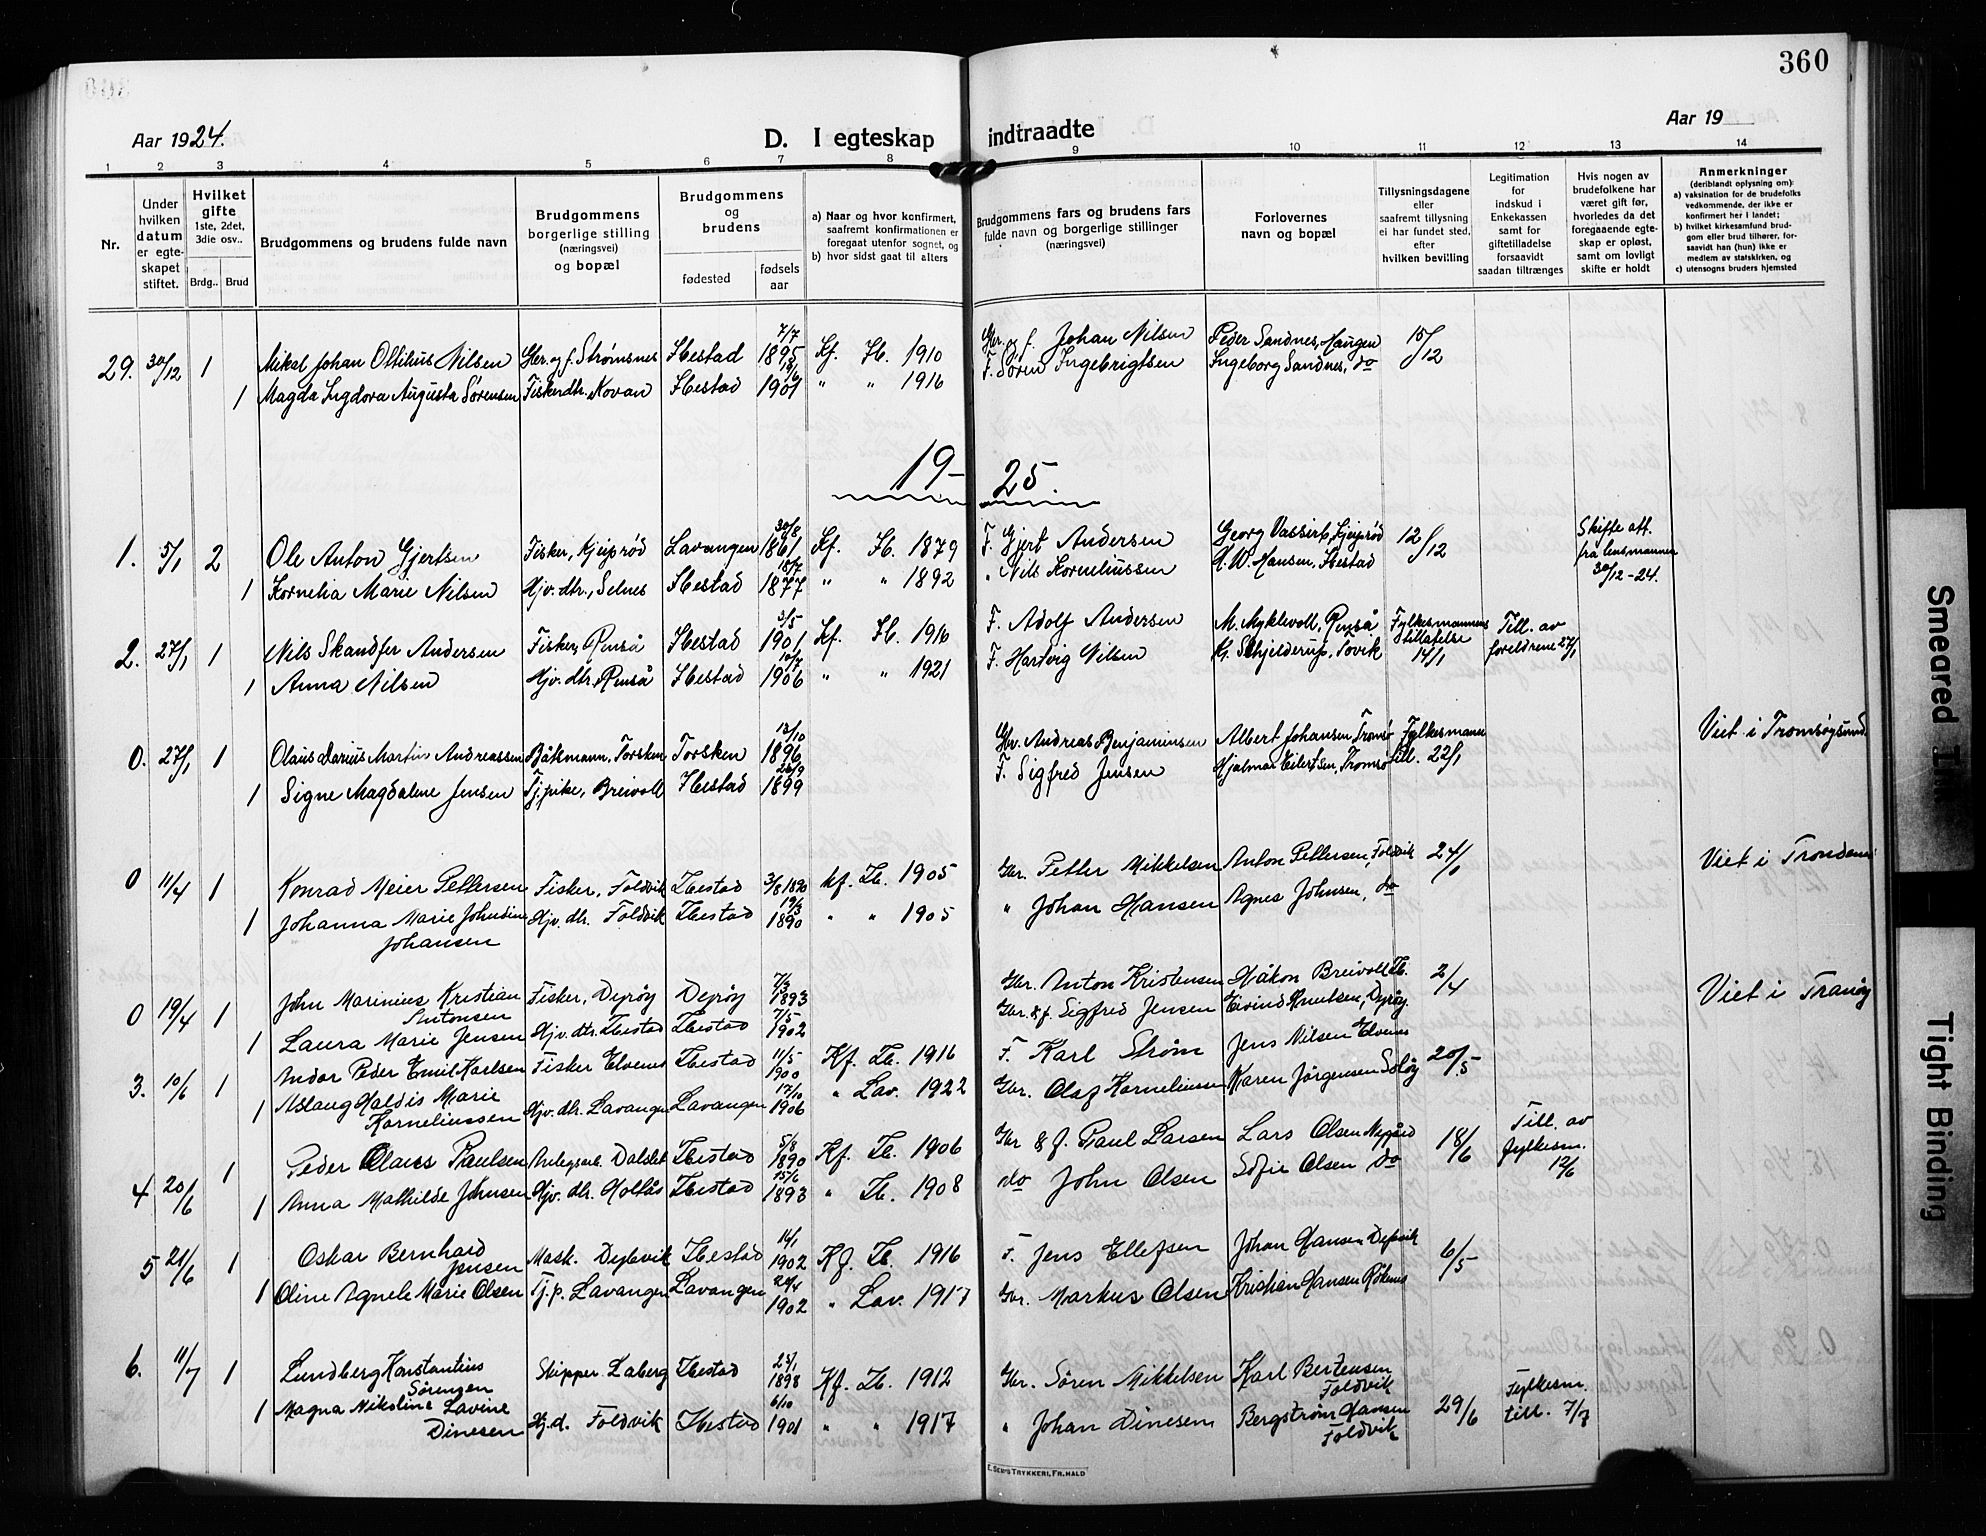 360
Aar 1924.
D. I egteskap indtraadte
Aar 19
1 2 3 4 5 6 7 8 9 10 11 12 13 14
Nr.
Under hvilken datum er egte-skapet stiftet.
Hvilket gifte 1ste, 2det, 3die osv..
Brdg.. Brud
Brudgommens og brudens fulde navn
Brudgommens borgerlige stilling (næringsvei) og bopæl
Brudgommens og brudens
fødested
fødsels aar
a) Naar og hvor konfirmert, saafremt konfirmationen er foregaat utenfor sognet, og
b) hvor sidst gaat til alters
Brudgommens fars og brudens fars fulde navn og borgerlige stillinger (næringsvei)
Forlovernes navn og bopæl
Tillysningsdagene eller saafremt tillysning ei har fundet sted, efter hvilken bevilling
Legitimation for indskud i Enkekassen samt for giftetilladelse forsaavidt saadan tiltrænges
Hvis nogen av brudefolkene har været gift før, hvorledes da det foregaaende egte-skap er opløst, samt om lovligt skifte er holdt
Anmerkninger (deriblandt oplysning om):
a) vaksination for de brudefolks vedkommende, der ikke er konfirmert her i landet;
b) hvilket kirkesamfund brud-gom eller brud tilhører, for-saavidt han (hun) ikke er medlem av statskirken, og
c) utensogns bruders hjemsted
29. 30/12 1 Mikal Johan Ottilius Nilsen Gbr. og f. Strømsnes Ibestad 7/7 1895 Kf. Ib. 1910 Gbr. og f. Johan Nilsen Peder Sandnes, Haugen 15/12
1 Magda Ingdora Augusta Sørensen Fiskerdtr. Kovan Ibestad 1901 " " 1916 F. Søren Ingebrigtsen Ingeborg Sandnes, do
19- 25.
1. 5/1 2 Ole Anton Gjertsen Fisker, Lavangen 30/8 1861 Kf. Ib. 1879 F. Gjert Andersen Georg 12/12 Skifte att. fra lensmannen 30/12-24.
1 Kornelia Marie Nilsen Hjv. dtr., Selnes Ibestad 18/7 1877 " " 1892 " Nils Korneliussen H. W. Hansen, Ibestad
2. 27/1 1 Nils Skandfer Andersen Fisker, Renså Ibestad 3/5 1901 Kf. Ib. 1916 F. Adolf Andersen M. Myklevoll, Renså Fylkesmannens tillatelse 14/1 Till. av foreldrene 27/1
1 Anna Nilsen Hjv. dtr. Renså Ibestad 10/7 1906 " " 1921 F. Hartvig Nilsen Kr. Schjelderup, Tovik
0. 27/1 1 Olaus Darius Martin Andreassen Båtsmann, Torsken Torsken 13/10 1896 Gbr. Andreas Benjaminsen Albert Johansen Tromsø Fylkesmann till. 22/1 Viet i Tromsøysund
1 Signe Magdalene Jensen Tj.pike, Breivoll Ibestad 1899 F. Sigfred Jensen Hjalmar Eilertsen, Tromsø
0 11/4 1 Konrad Meier Pettersen Fisker, Foldvik Ibestad 3/8 1890 Kf. Ib. 1905 Gbr. Petter Mikkelsen Anton Pettersen, Foldvik Viet i
1 Johanna Marie Johansen Hjv. dtr. Foldvik Ibestad 19/3 1890 " " 1905 " Johan Hansen Agnes Johnsen, do
0 19/4 1 John Marinius Kristian Antonsen Fisker, Dyrøy Dyrøy 7/3 1893 Gbr. Anton Kristensen Håkon Breivoll Ib. 2/4 Viet i Tranøy
1 Laura Marie Jensen Hjv. dtr. Ibestad Ibestad 7/5 1902 Gbr. & f. Sigfred Jensen Eivind Knutsen, Dyrøy
3. 10/6 1 Andor Peder Emil Karlsen Fisker Elvenes Ibestad 11/5 1900 Kf. Ib. 1916 F. Karl Strøm Jens Nilsen Elvenes 20/5
1 Aslaug Haldis Marie Korneliussen Hjv. dtr. Lavangen Lavangen 17/10 1906 " Lav. 1922 Gbr. Olaf Korneliussen Karen Jörgensen Soløy
4 20/6 1 Peder Claus Paulsen Anlegsarb. Ibestad 5/8 1890 Kf. Ib. 1906 Gbr & f. Paul Larsen Lars Olsen 18/6 Till. av fylkesm. 12/6
1 Anna Mathilde Johnsen Hjv. dtr. Ibestad 15/6 1893 " Ib. 1908 do John Olsen Sofie Olsen do
5 21/6 1 Oskar Bernhard Jensen Mask. Ibestad 14/1 1902 Kf. Ib. 1916 F. Jens Ellefsen Johan Hansen 6/5
1 Oline Agnele Marie Olsen Tj. p. Lavangen Lavangen 1902 " Lav. 1917 Gbr. Markus Olsen Kristian Hansen Røkenes
6. 11/7 1 Lundberg Konstantius Sörensen Skipper Laberg Ibestad 25/1 1898 Kf. Ib. 1912 Gbr. Sören Mikkelsen Karl Bertensen Foldvik 29/6 Fylkesm. till. 7/7
1 Magna Nikoline Lavine Dinesen Hj. d. Foldvik Ibestad 6/10 1901 " " 1917 " Johan Dinesen Bergström Hansen Foldvik
E. SEMS TRYKKERI, FR.HALD
Smeared Ink
Tight Binding